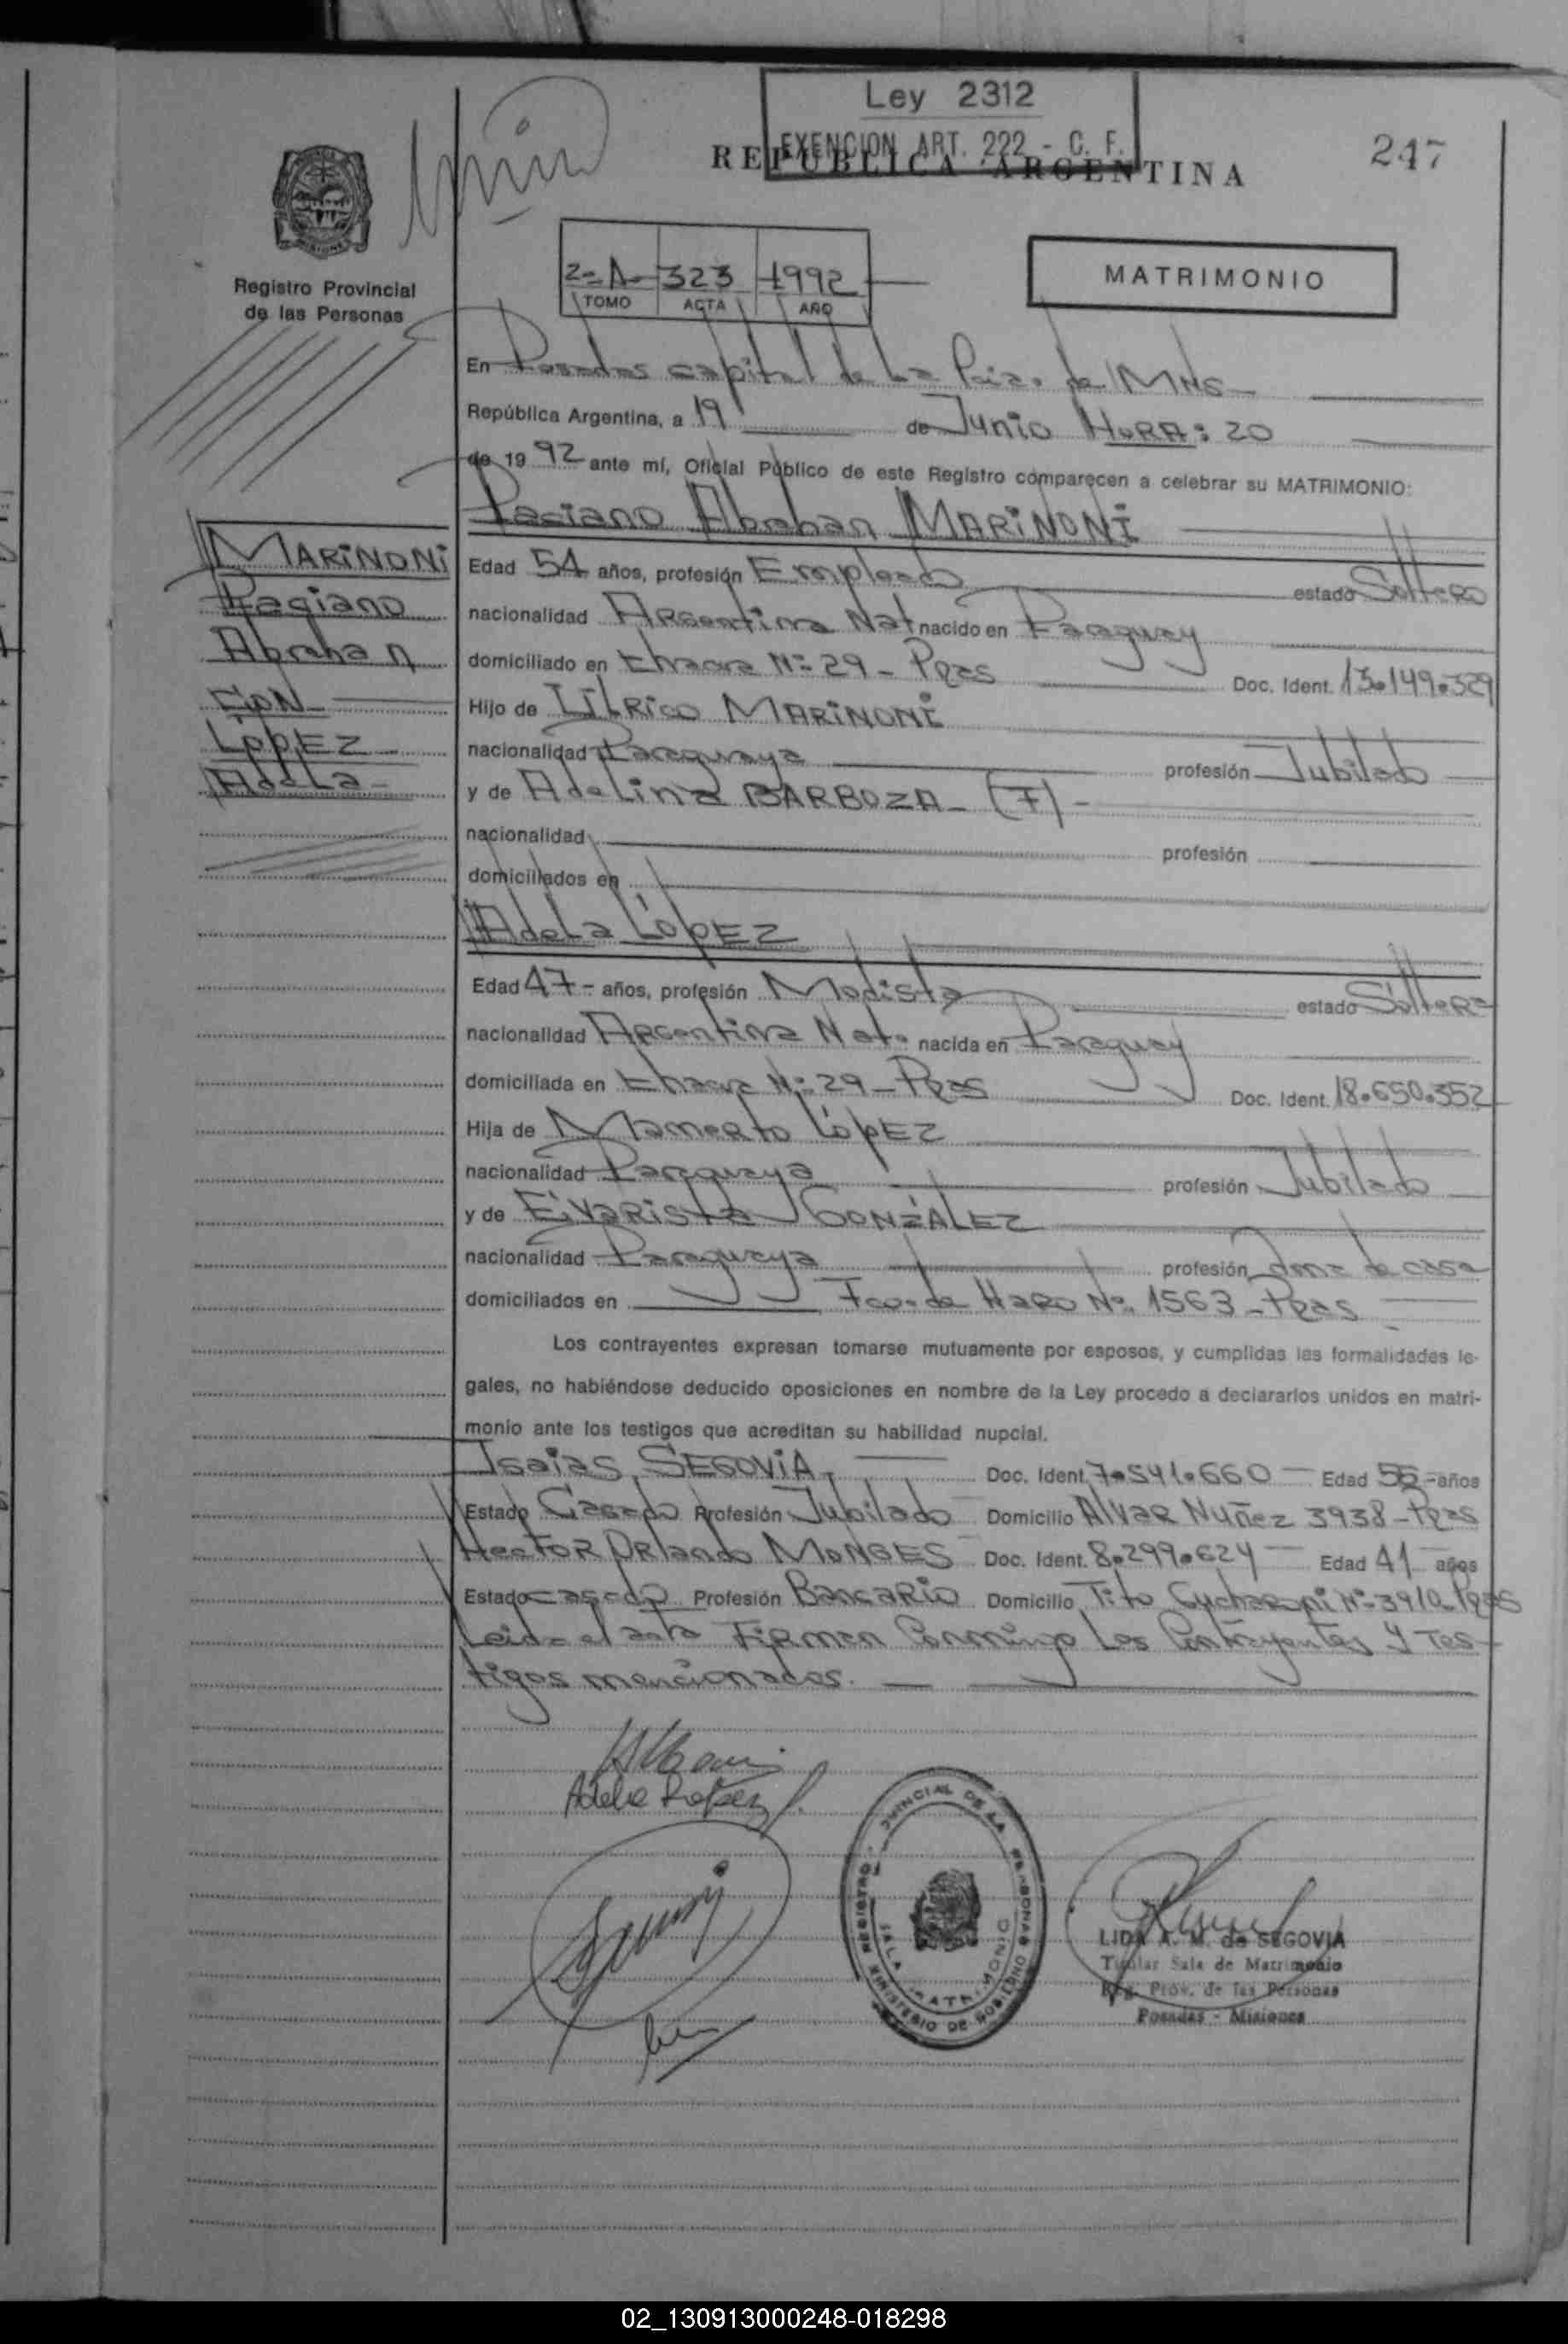 Ley 2312
EXENCION ART. 222 - C. F.
REPUBLICA ARGENTINA
247
Registro Provincial
de las Personas
2-A- 323 1992
TOMO ACTA AÑO
MATRIMONIO
En Posadas capital de La de Mns
República Argentina, a 19 de Junio HORA: 20
de 19 92 ante mí, Oficial Público de este Registro comparecen a celebrar su MATRIMONIO:
Abrahan MARINONI
MARINONI
Abrahan
CON
LópEZ
AdeLa
Edad 54 años, profesión Empleado estado Soltero
nacionalidad Argentina Nat nacido en Paraguay
domiciliado en Chacra Nº 29 - Pdas Doc. Ident. 13.149.329
Hijo de MARINONI
nacionalidad Paraguaya profesión Jubilado
y de AdeLina BARBOZA - (F) -
nacionalidad profesión
domiciliados en
AdeLa LópEZ
Edad 47 - años, profesión Modista estado Soltera
nacionalidad Argentina Nat. nacida en Paraguay
domiciliada en Chacra Nº 29 - Pdas Doc. Ident. 18.650.352
Hija de Mamerto LópEZ
nacionalidad Paraguaya profesión Jubilado
y de EVarista GONZÁLEZ
nacionalidad Paraguaya profesión Ama de casa
domiciliados en Fco. de Haro Nº 1563 - Pdas
Los contrayentes expresan tomarse mutuamente por esposos, y cumplidas las formalidades le-
gales, no habiéndose deducido oposiciones en nombre de la Ley procedo a declararlos unidos en matri-
monio ante los testigos que acreditan su habilidad nupcial.
Isaias SEGOVIA Doc. Ident. 7.541.660 Edad 55 - años
Estado Casado Profesión Jubilado Domicilio Alvar Nuñez 3938 - Pdas
Hector Orlando MONGES Doc. Ident. 8.299.624 Edad 41 años
Estado casado Profesión Bancario Domicilio Tito Nº 3910 - Pdas
Leida el acta Firman Conmigo Los Contrayentes y Tes-
tigos mencionados.
Adela Lopez
REGISTRO PROVINCIAL DE LAS PERSONAS
MINISTERIO DE GOBIERNO
SALA MATRIMONIO
LIDA A. M. de SEGOVIA
Titular Sala de Matrimonio
Reg. Prov. de las Personas
Posadas - Misiones
02_130913000248-018298